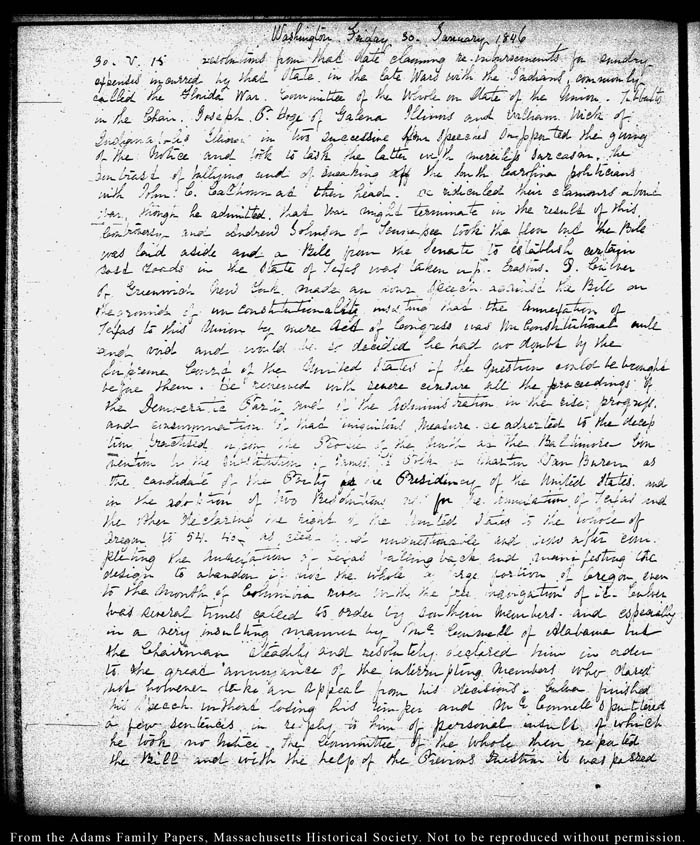 Washington Friday 30. January 1846
30. V. 15 resolutions from that State claiming re-imbursements for sundry
expenses incurred by that State in the late War with the Indians, commonly
called the Florida War. Committee of the Whole on State of the Union.
in the Chair. Joseph P. Hoge of Galena Illinois and William Wick of
Indiana, in two successive speeches supported the giving
of the Notice and took to task the latter with merciless sarcasm. the
of bullying and of sneaking off the South Carolina politicians
with John C. Calhoun at their head. he ridiculed their clamours about
war, though he admitted that War might terminate in the result of this
Controversy. and Andrew Johnson of Tennessee took the floor but the Bill
was laid aside and a Bill from the Senate to establish certain
Post Roads in the State of Texas was taken up. Erastus D. Culver
of Greenwich New York made an hour speech against the Bill on
the ground of unconstitutionality insisting that the Annexation of
Texas to this Union by mere Act of Congress was Unconstitutional null
and void and would be so decided he had no doubt by the
Supreme Court of the United States if the Question could be brought
before them. He reviewed with severe censure all the proceedings of
the Democratic Party and of the Administration in the rise, progress,
and consummation of that iniquitous measure. he adverted to the decep
tion practised upon the People of the North at the Baltimore Con
vention by the substitution of James K Polk for Martin Van Buren as
the candidate of the Party for the Presidency of the United States and
in the adoption of two Resolutions one for the annexation of Texas and
the other declaring the right of the United States to the whole of
Oregon to 54. 40. as clear and unquestionable and now after com
pleting the Annexation of Texas falling back and manifesting the
design to abandon if not the whole a large portion of Oregon even
to the Mouth of Columbia river with the free navigation of it. Culver
was several times called to order by Southern Members. and especially
in a very insulting manner by McConnell of Alabama but
the Chairman steadily and resolutely declared him in order
to the great annoyance of the interrupting Members who dared
not however take an appeal from his decisions. Culver finished
his Speech without losing his temper and McConnell sputtered
a few sentences in reply to him of personal insult of which
he took no notice. the Committee of the Whole then reported
the Bill and with the help of the Previous Question it was passed
From the Adams Family Papers, Massachusetts Historical Society. Not to be reproduced without permission.